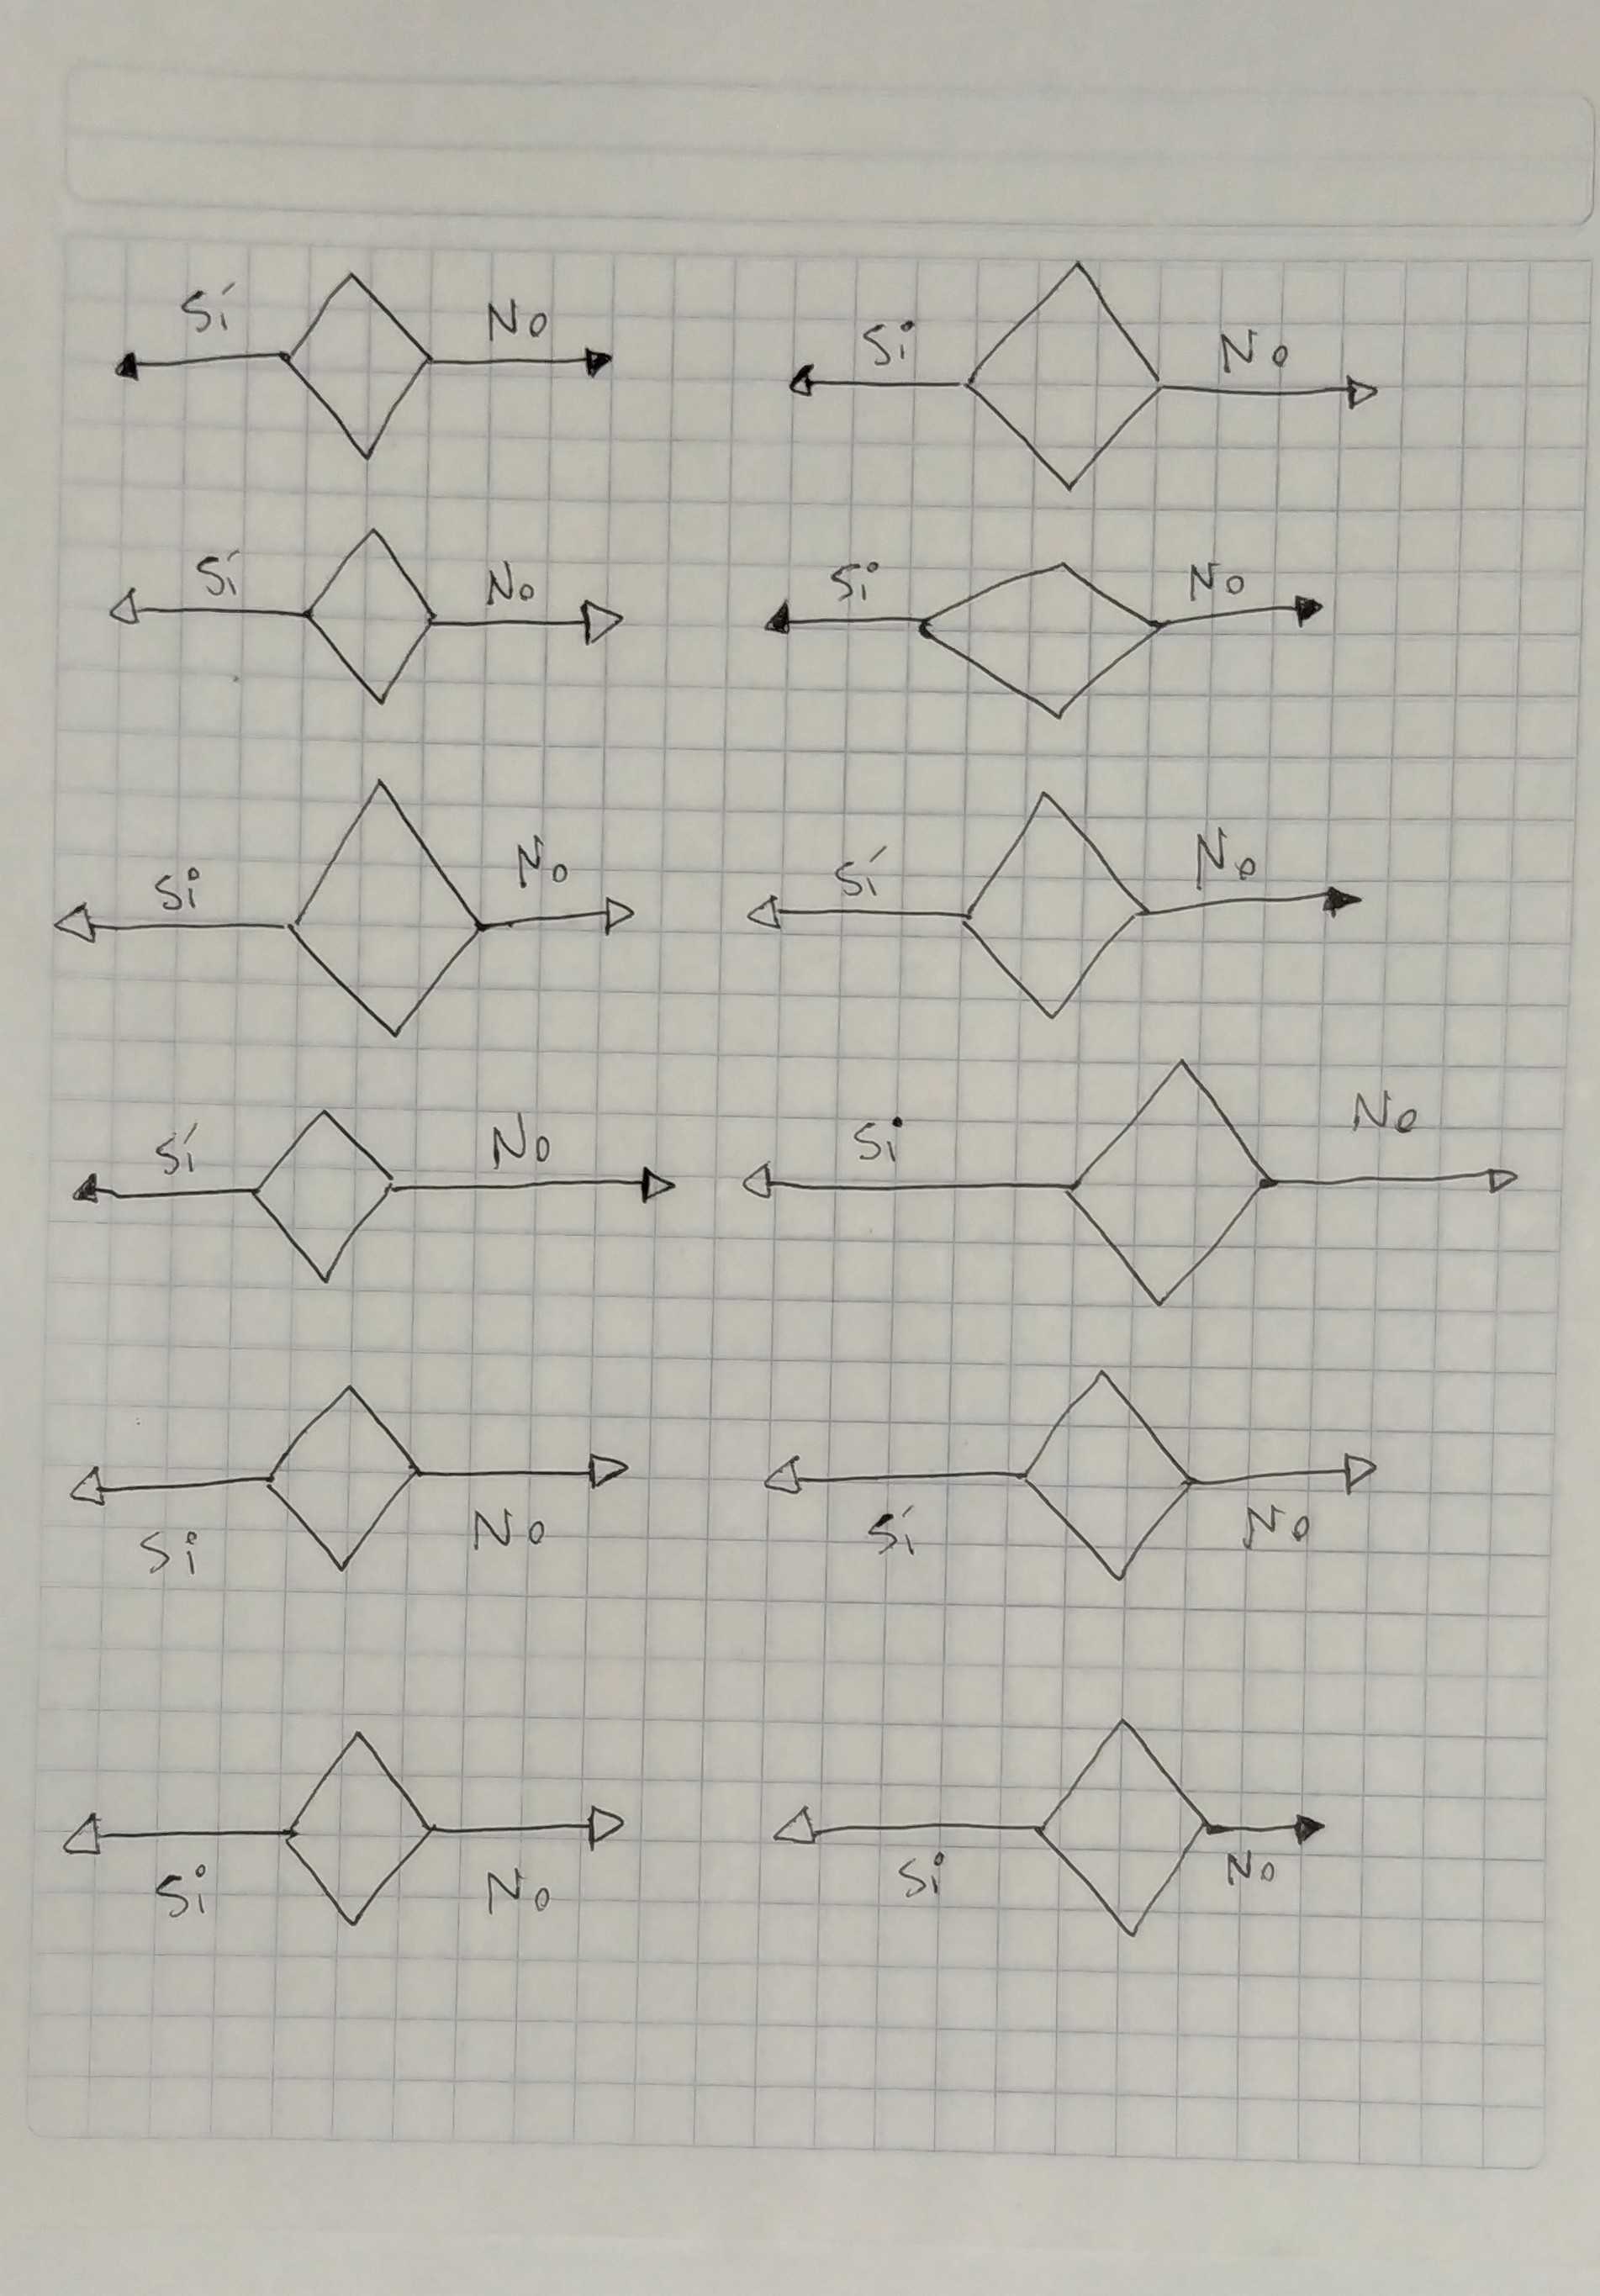 Sí No
Si No
Sí No
Si No
Si No
Sí No
Sí No
Si No
Si No
Sí No
Si No
Si No